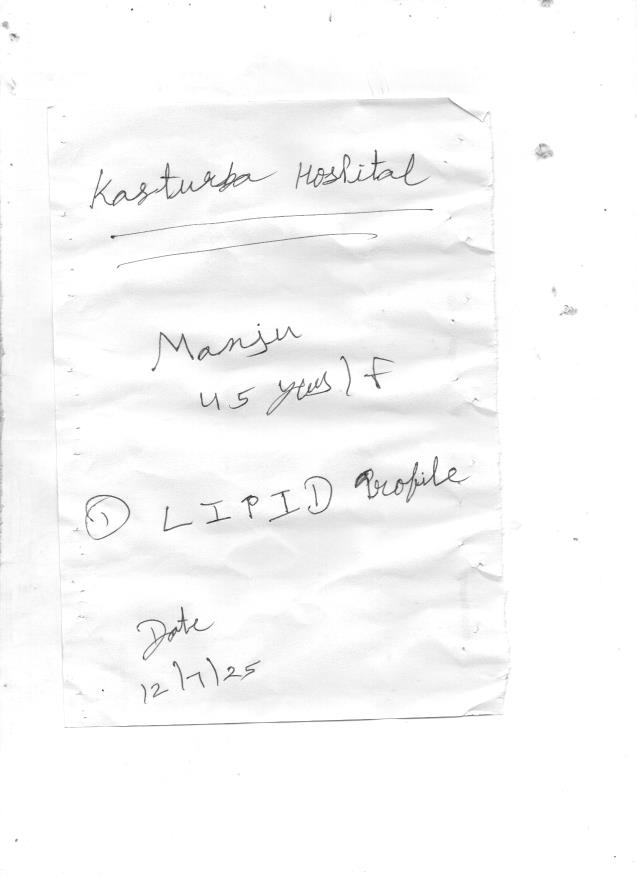 Kasturba Hospital
Manju
45 years / F
① LIPID Profile
Date
12/7/25